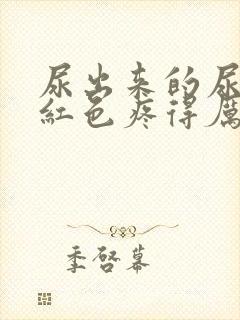 尿出来的尿
红色疼得厉
季啓幕